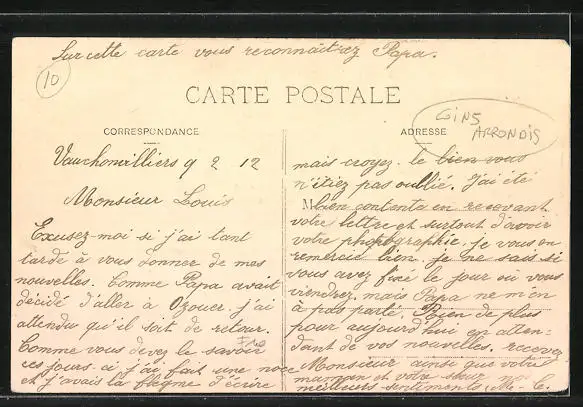 Sur cette carte vous reconnaitrez Papa.
10
CARTE POSTALE
CORRESPONDANCE
Vauchonvilliers 9 2 12
Monsieur Louis
Excusez-moi si j'ai tant
tardé à vous donner de mes
nouvelles. Comme Papa avait
décidé d'aller à Ozouer j'ai
attendu qu'il soit de retour.
Comme vous devez le savoir
ces jours-ci j'ai fait une noce
et j'avais la flegme d'écrire
ADRESSE
COINS
ARRONDIS
mais croyez-le bien vous
n'étiez pas oublié. J'ai été
bien contente en recevant
votre lettre et surtout d'avoir
votre photographie. je vous en
remercie bien. je ne sais si
vous avez fixé le jour où vous
viendrez. mais Papa ne m'en
a pas parlé. Rien de plus
pour aujourd'hui en atten-
dant de vos nouvelles. recevez
Monsieur ainsi que votre
maman et votre sœur
meilleurs sentiments. M. C.